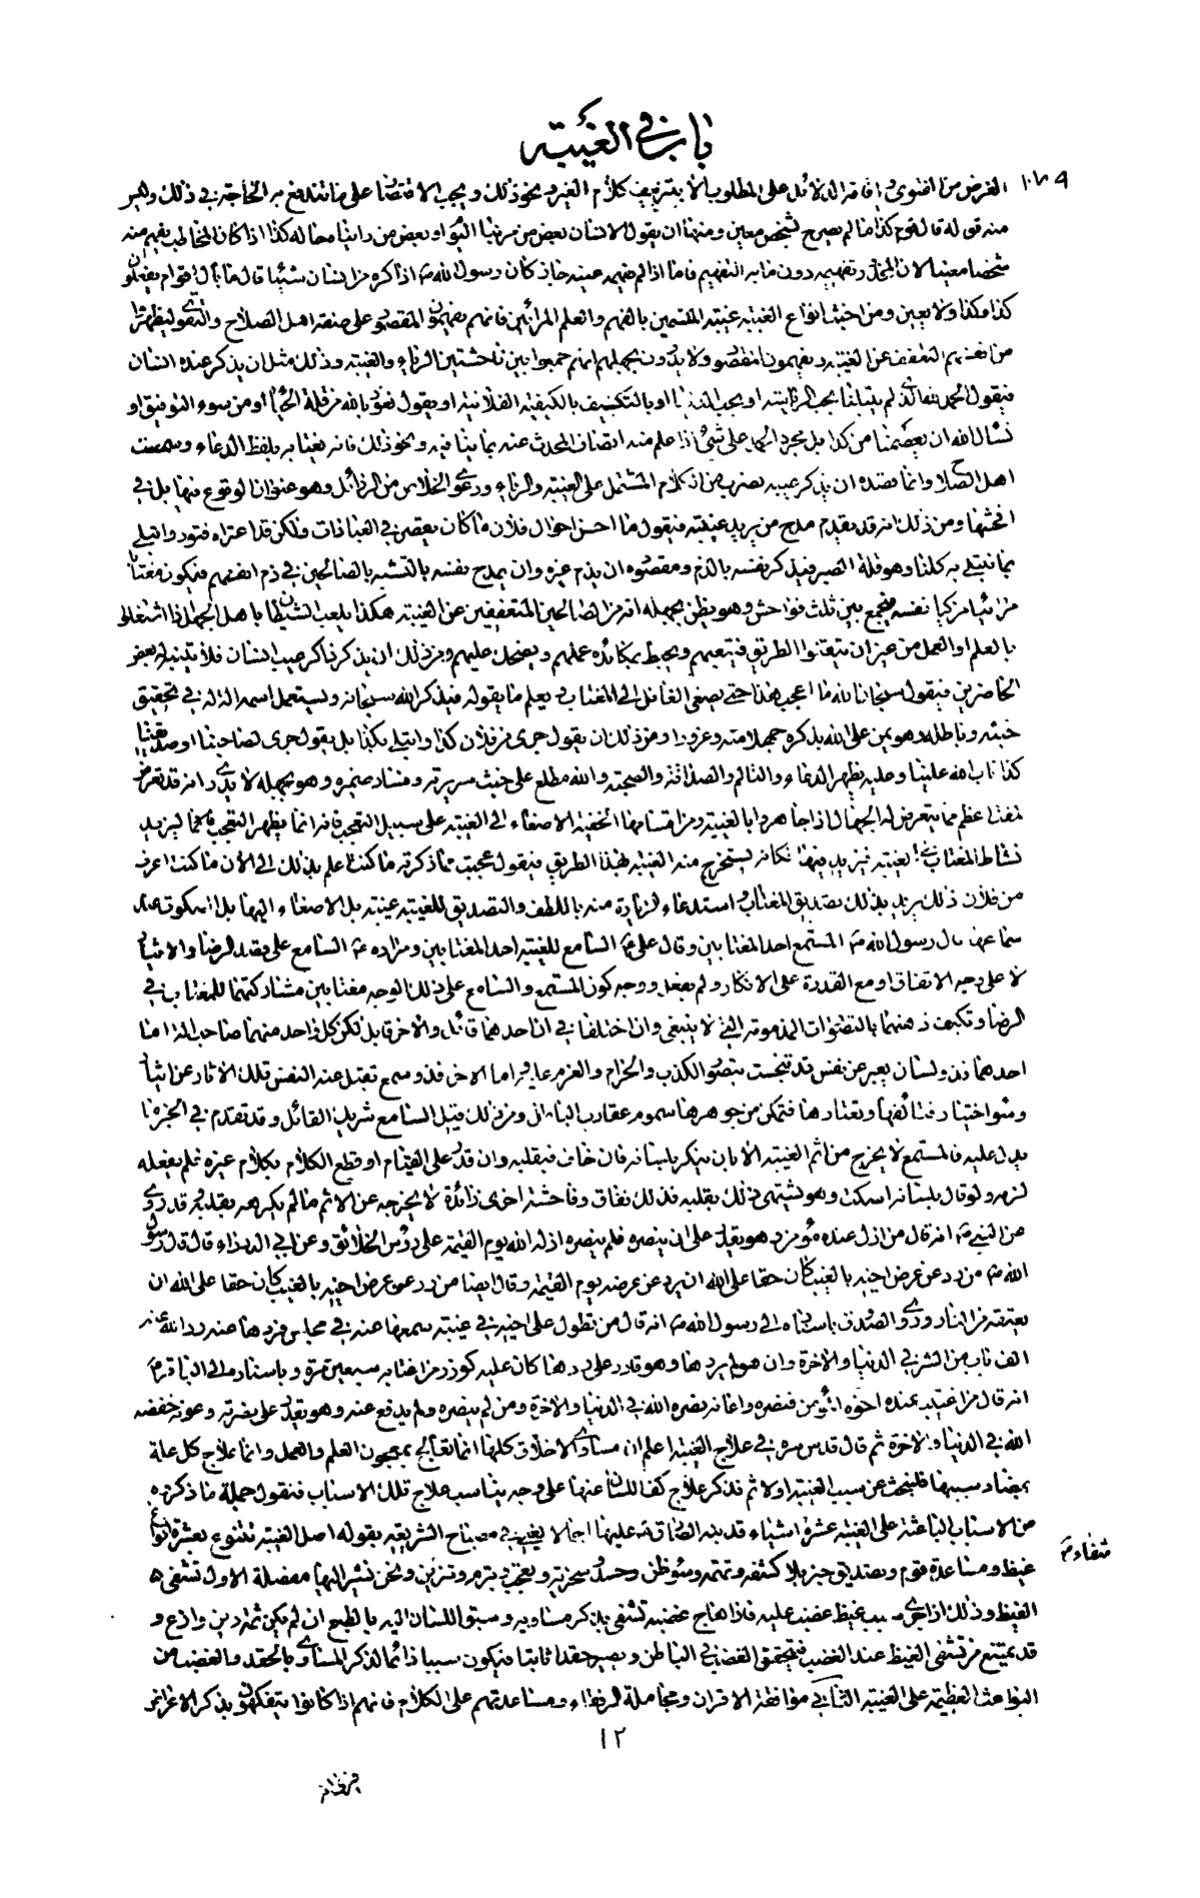 باب في الغيبة
١٠٧٩
الغرض من الفتوى واقامة الدلائل على المطلوب الا بتزييف كلام الغير ونحو ذلك ويجب الاقتصار على ما تندفع به الحاجة في ذلك وليس
منه قوله قال قوم كذا ما لم يصرح لشخص معين ومنها ان يقول الانسان بعض من مر بنا اليوم او بعض من رايناه حاله كذا اذا كان المخاطب يفهم منه
شخصا معينا لان المحذور تفهيمه دون ما به التفهيم فاما اذا لم يفهمه عينه جاز كان رسول الله ص اذا كره من انسان شيئا قال ما بال اقوام يفعلون
كذا وكذا ولا يعين ومن اخبث انواع الغيبة غيبة المتسمين بالفهم والعلم المرائين فانهم يفهمون المقصود على صفة اهل الصلاح والتقوى ليظهروا
من انفسهم التعفف عن الغيبة ويفهمون المقصود ولا يدرون بجهلهم انهم جمعوا بين فاحشتين الرياء والغيبة وذلك مثل ان يذكر عنده انسان
فيقول الحمد لله الذي لم يبتلنا بحب الرياسة او بحب الدنيا او بالتكيف بالكيفية الفلانية او يقول نعوذ بالله من قلة الحياء او من سوء التوفيق او
نسال الله ان يعصمنا من كذا بل مجرد الحمد على شيء اذا علم منه اتصاف المحدث عنه بما ينافيه ونحو ذلك فانه يغتابه بلفظ الدعاء وسمت
اهل الصلاح وانما قصده ان يذكر عيبه بضرب من الكلام المشتمل على الغيبة والرياء ودعوى الخلاص من الرذائل وهو عنوان الوقوع فيها بل في
افحشها ومن ذلك انه قد يقدم مدح من يريد غيبته فيقول ما احسن احوال فلان ما كان يقصر في العبادات ولكن قد اعتراه فتور وابتلى
بما نبتلى به كلنا وهو قلة الصبر فيذكر نفسه بالذم ومقصوده ان يذم غيره وان يمدح نفسه بالتشبه بالصالحين في ذم انفسهم فيكون مغتابا
مرائيا مزكيا نفسه فيجمع بين ثلث فواحش وهو يظن بجهله انه من الصالحين المتعففين عن الغيبة هكذا يلعب الشيطان باهل الجهل اذا اشتغلوا
بالعلم او العمل من غير ان يتقنوا الطريق فيتبعهم ويحبط بمكائده عملهم ويضحك عليهم ومن ذلك ان يذكر ذاكر عيب انسان فلا يتنبه له بعض
الحاضرين فيقول سبحان الله ما اعجب هذا حتى يصغى الغافل الى المغتاب ويعلم ما يقوله فيذكر الله سبحانه ويستعمل اسمه آلة له في تحقيق
خبثه وباطله وهو يمن على الله بذكره جهلا منه وغرورا ومن ذلك ان يقول جرى من فلان كذا وابتلى بكذا بل يقول جرى لصاحبنا او صديقنا
كذا تاب الله علينا وعليه يظهر الدعاء والتالم والصداقة والصحبة والله مطلع على خبث سريرته وفساد ضميره وهو بجهله لا يدرى انه قد تعرض
لمقت اعظم مما يتعرض له الجهال اذا جاهروا بالغيبة ومن اقسامها الخفية الاصغاء الى الغيبة على سبيل التعجب فانه انما يظهر التعجب ليزيد
نشاط المغتاب في الغيبة فيزيد فيها فكانه يستخرج منه الغيبة بهذا الطريق فيقول عجبت مما ذكرته ما كنت اعلم بذلك الى الآن ما كنت اعرف
من فلان ذلك يريد بذلك تصديق المغتاب واستدعاء الزيادة منه باللطف والتصديق للغيبة غيبة بل الاصغاء اليها بل السكوت عند
سماعها قال رسول الله ص المستمع احد المغتابين وقال على ع السامع للغيبة احد المغتابين ومراده ع السامع على قصد الرضا والايثار
لا على وجه الاتفاق او مع القدرة على الانكار ولم يفعل ووجه كون المستمع والسامع على ذلك الوجه مغتابين مشاركتهما للمغتاب في
الرضا وتكيف ذهنهما بالتصورات المذمومة التي لا ينبغى وان اختلفا في ان احدهما قائل والآخر قابل لكن كل واحد منهما صاحب آلة اما
احدهما فذو لسان يعبر عن نفس قد تنجست بتصور الكذب والحرام والعزم عليه واما الآخر فذو سمع تقبل عنه النفس تلك الآثار عن ايثار
وسوء اختيار فتالفها وتعتادها فتمكن من جوهرها سموم عقارب الباطل ومن ذلك قيل السامع شريك القائل وقد تقدم في الخبر ما
يدل عليه فالمستمع لا يخرج من اثم الغيبة الا بان ينكر بلسانه فان خاف فبقلبه وان قدر على القيام او قطع الكلام بكلام غيره فلم يفعله
لزمه ولو قال بلسانه اسكت وهو يشتهى ذلك بقلبه فذلك نفاق وفاحشة اخرى زائدة لا يخرجه عن الاثم ما لم يكرهه بقلبه وقد روى
عن النبي ص انه قال من اذل عنده مؤمن وهو يقدر على ان ينصره فلم ينصره اذله الله يوم القيمة على رؤس الخلائق وعن ابى الدرداء قال قال رسول
الله ص من رد عن عرض اخيه بالغيب كان حقا على الله ان يرد عن عرضه يوم القيمة وقال ايضا من رد عن عرض اخيه بالغيب كان حقا على الله ان
يعتقه من النار وروى الصدوق باسناده الى رسول الله ص انه قال من تطول على اخيه في غيبة سمعها عنه في مجلس فردها عنه رد الله عنه
الف باب من الشر في الدنيا والآخرة وان هو لم يردها وهو قادر على ردها كان عليه كوزر من اغتابه سبعين مرة وباسناده الى الباقر ع
انه قال من اغتيب عنده اخوه المؤمن فنصره واعانه نصره الله في الدنيا والآخرة ومن لم ينصره ولم يدفع عنه وهو يقدر على نصرته وعونه خفضه
الله في الدنيا والآخرة ثم قال قدس سره في علاج الغيبة اعلم ان مساوى الاخلاق كلها انما تعالج بمعجون العلم والعمل وانما علاج كل علة
بمضاد سببها فلنبحث عن سبب الغيبة اولا ثم نذكر علاج كف اللسان عنها على وجه يناسب علاج تلك الاسباب فنقول جملة ما ذكروه
من الاسباب الباعثة على الغيبة عشرة اشياء قد نبه الصادق ع عليها اجمالا في مصباح الشريعة بقوله اصل الغيبة تتنوع بعشرة انواع
شفاء
غيظ ومساعدة قوم وتصديق خبر بلا كشفه وتهمة وسوء ظن وحسد وسخرية وتعجب وتبرم وتزين ونحن نشير اليها مفصلة الاول تشفى
الغيظ وذلك اذا جرى سبب غيظ غضب عليه فاذا هاج غضبه تشفى بذكر مساويه وسبق اللسان اليه بالطبع ان لم يكن ثمة دين وازع و
قد يمتنع من تشفى الغيظ عند الغضب فيحتقن الغضب في الباطن ويصير حقدا ثابتا فيكون سببا دائما لذكر المساوى بالحقد والغضب من
البواعث العظيمة على الغيبة الثانى موافقة الاقران ومجاملة الرفقاء ومساعدتهم على الكلام فانهم اذا كانوا يتفكهون بذكر الاعراض
١٢